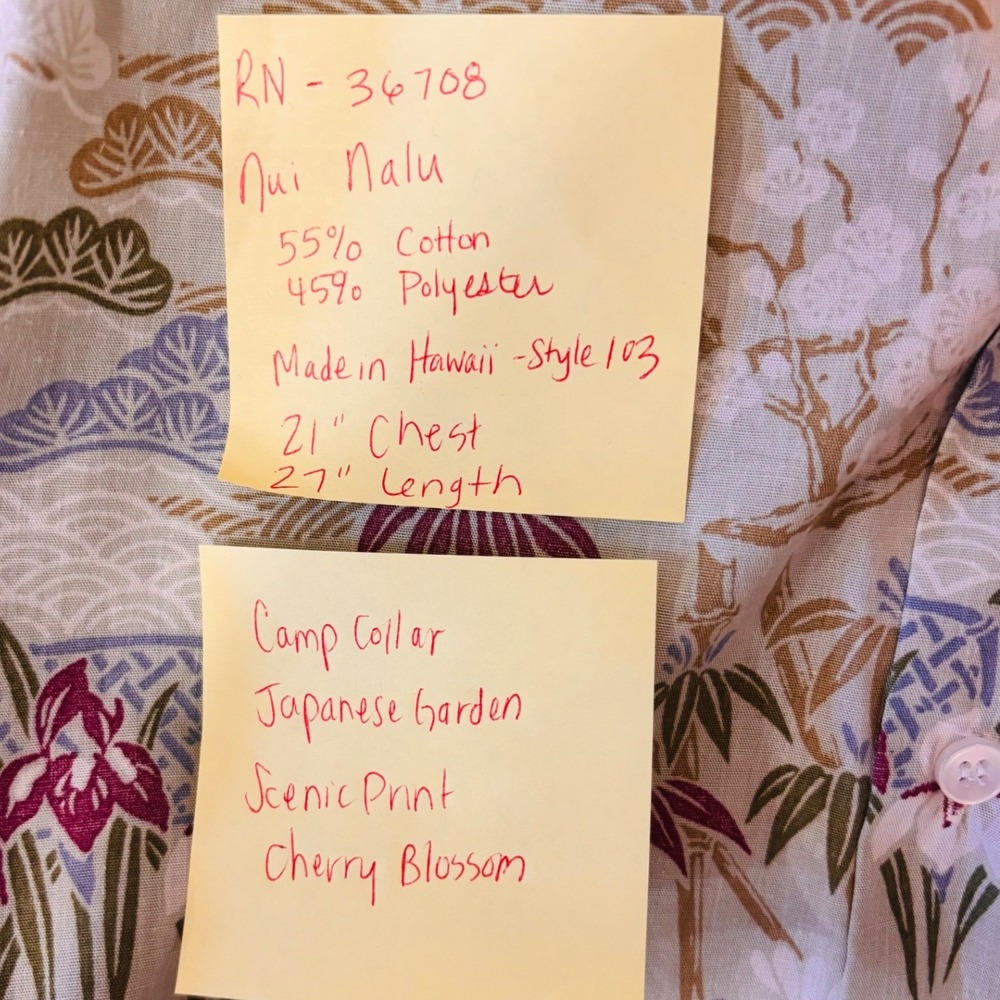 RN - 36708
Nui Nalu
55% Cotton
45% Polyester
Made in Hawaii - Style 103
21" Chest
27" Length
Camp Collar
Japanese Garden
Scenic Print
Cherry Blossom